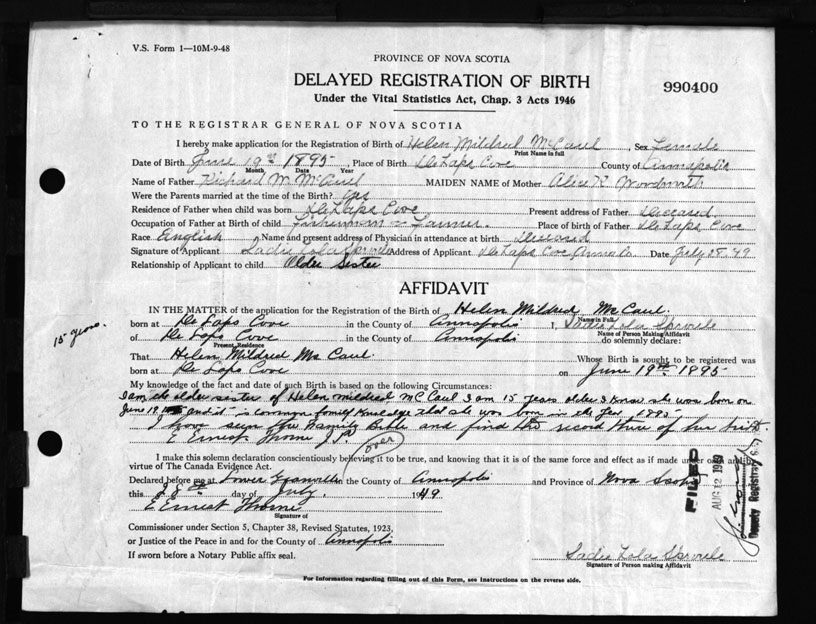 V.S. Form 1—10M-9-48
PROVINCE OF NOVA SCOTIA
DELAYED REGISTRATION OF BIRTH
990400
Under the Vital Statistics Act, Chap. 3 Acts 1946
TO THE REGISTRAR GENERAL OF NOVA SCOTIA
I hereby make application for the Registration of Birth of Helen Mildred McCaul, Sex Female
Print Name in full
Date of Birth June 19th 1895, Place of Birth De Laps Cove County of Annapolis
Month Date Year
Name of Father Richard W. McCaul MAIDEN NAME of Mother Alice Woodworth
Were the Parents married at the time of the Birth? yes
Residence of Father when child was born De Laps Cove Present address of Father Deceased
Occupation of Father at Birth of child Fisherman Place of birth of Father De Laps Cove
Race English Name and present address of Physician in attendance at birth Deceased
Signature of Applicant Sadie Lola Sproule Address of Applicant De Laps Cove Anna Co. Date July 28-49
Relationship of Applicant to child Older Sister
AFFIDAVIT
IN THE MATTER of the application for the Registration of Birth of Helen Mildred Mc Caul.
Name in Full
born at De Laps Cove in the County of Annapolis I, Sadie Lola Sproule
Name of Person Making Affidavit
of De Laps Cove in the County of Annapolis do solemnly declare:
Present Residence
15 years.
That Helen Mildred Mc Caul. Whose Birth is sought to be registered was
born at De Laps Cove on June 19th 1895
My knowledge of the fact and date of such Birth is based on the following Circumstances:
I am the older sister of Helen Mildred McCaul I am 15 years older I know she was born on
June 19, and it is common family knowledge that she was born in the year 1895
I have seen the Family Bible and find the record there of her birth.
E Ernest Thorne J.P. (over)
I make this solemn declaration conscientiously believing it to be true, and knowing that it is of the same force and effect as if made under oath and by
virtue of The Canada Evidence Act.
Declared before me at Lower Granville in the County of Annapolis and Province of Nova Scotia
this 28th day of July. 1949
E Ernest Thorne
Signature of
Commissioner under Section 5, Chapter 38, Revised Statutes, 1923,
or Justice of the Peace in and for the County of Annapolis
If sworn before a Notary Public affix seal.
Sadie Lola Sproule
Signature of Person making Affidavit
FILED
AUG 12 1949
Deputy Registrar
For Information regarding filling out of this Form, see Instructions on the reverse side.